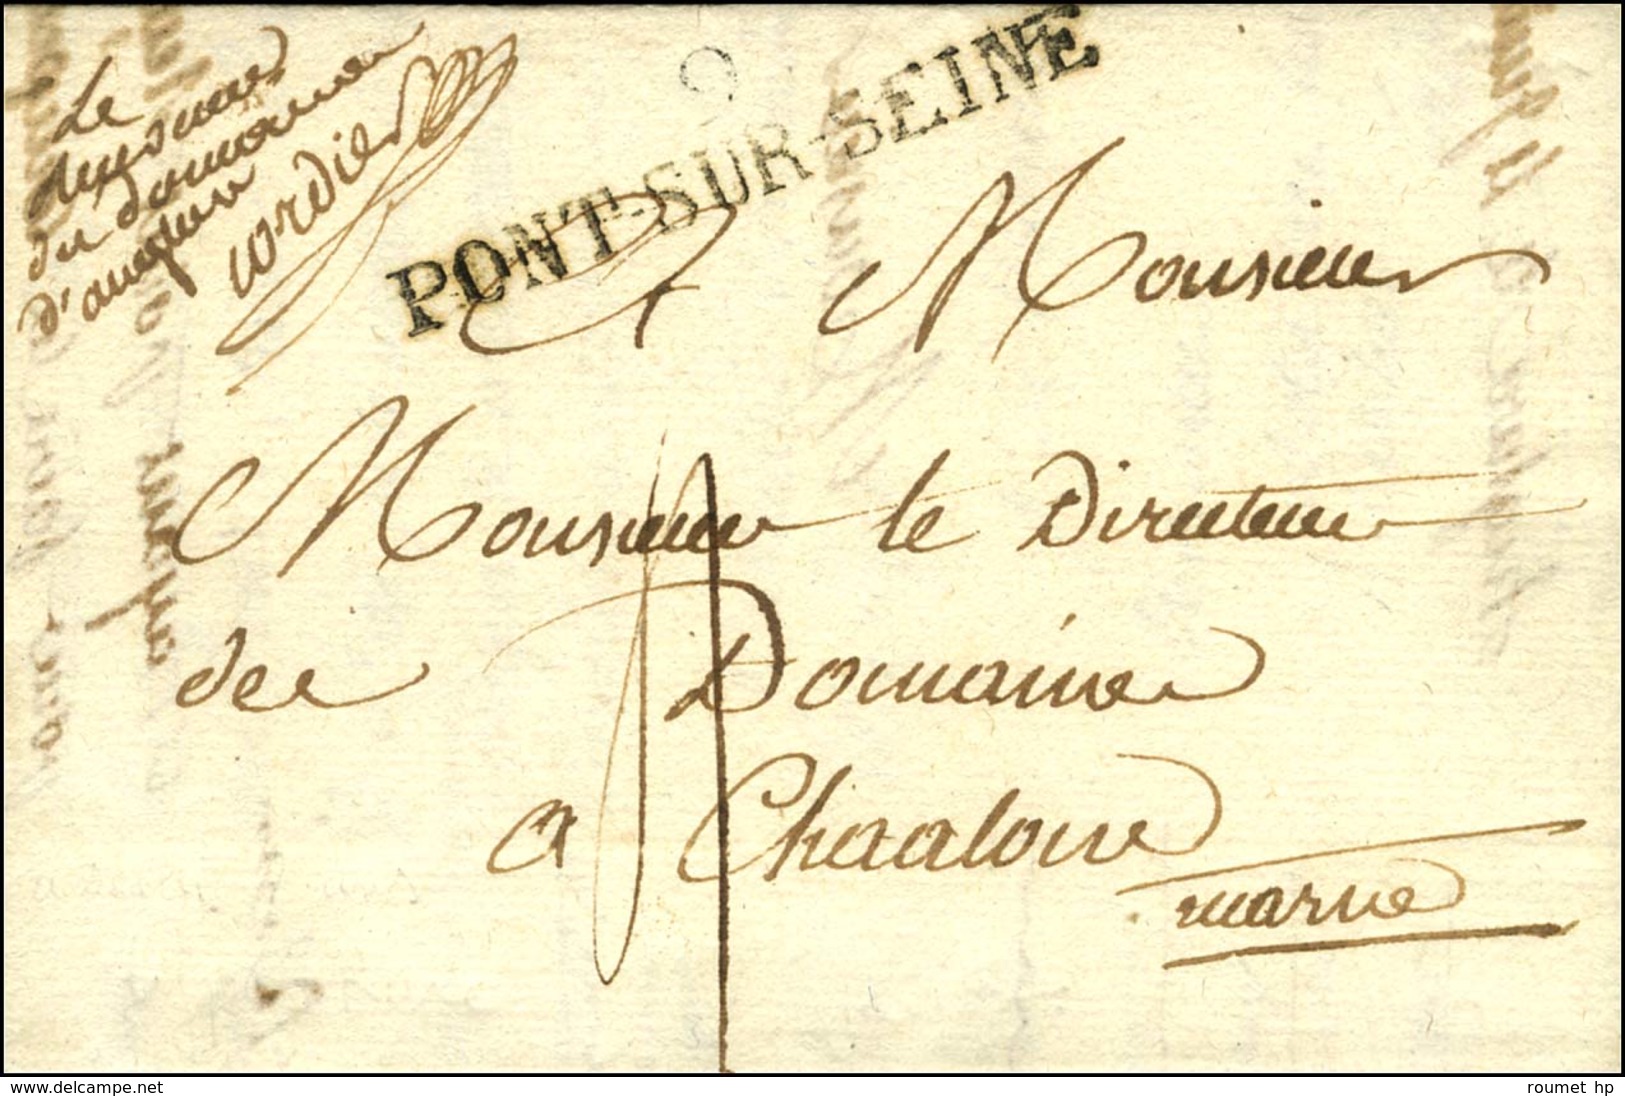 Le
du domaine
d'anglure
Cordier
9
PONT-SUR-SEINE
A Monsieur
Monsieur le Directeur
des Domaines
a Chaalons
marne
www.delcampe.net
roumet hp